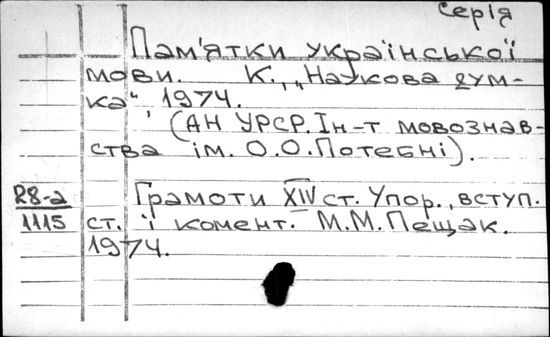 Серія
Пам'ятки української
мови. К., „Наукова дум-
ка“, 1974.
(АН УРСР. Ін-т мовознав-
ства ім. О.О.Потебні).
R8-а Грамоти XIV ст. Упор., вступ.
1115 ст. і комент. М.М.Пещак.
1974.